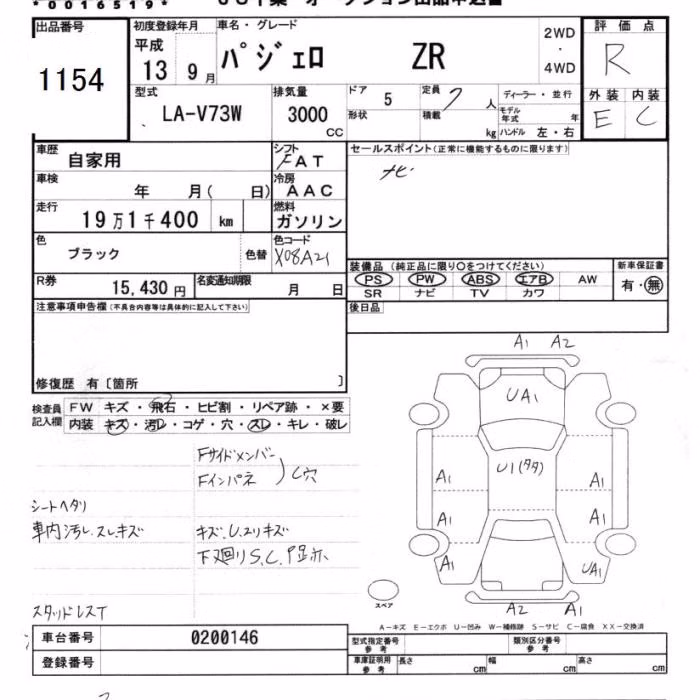 *0016519*
出品番号 初度登録年月 車名・グレード 2WD・4WD 評価点
1154 平成 13 9月 パジェロ ZR R
型式 排気量 ドア 定員 ディーラー・並行 外装 内装
LA-V73W 3000 CC 5 7人 モデル年式 年 E C
形状 積載 kg ハンドル 左・右
車歴 自家用 シフト FAT セールスポイント(正常に機能するものに限ります)
車検 年 月( 日) 冷房 AAC ナビ
走行 19万1千400 km 燃料 ガソリン
色 ブラック 色替 色コード X08A21
装備品 (純正品に限り○をつけてください) 新車保証書
R券 15,430円 名変通知期限 月 日 PS PW ABS エアB AW 有・無
SR ナビ TV カワ
注意事項申告欄(不具合内容等は具体的に記入して下さい) 後日品
修復歴 有〔箇所 〕
A1 A2
検査員記入欄 FW キズ・飛石・ヒビ割・リペア跡・×要
内装 キズ・汚レ・コゲ・穴・スレ・キレ・破レ
UA1
Fサイドメンバー
Fインパネ )C穴
U1(タタ)
A1 A1
シートヘタリ
車内汚レ.スレ.キズ キズ.U.スリキズ
A1 A1
下廻りS.C.P
A1 UA1
スタッドレスT
スペア
A2 A1
A-キズ E-エクボ U-凹み W-補修跡 S-サビ C-腐食 XX-交換済
車台番号 0200146 型式指定番号 参考 類別区分番号 参考
登録番号 車庫証明用 参考 長さ cm 幅 cm 高さ cm